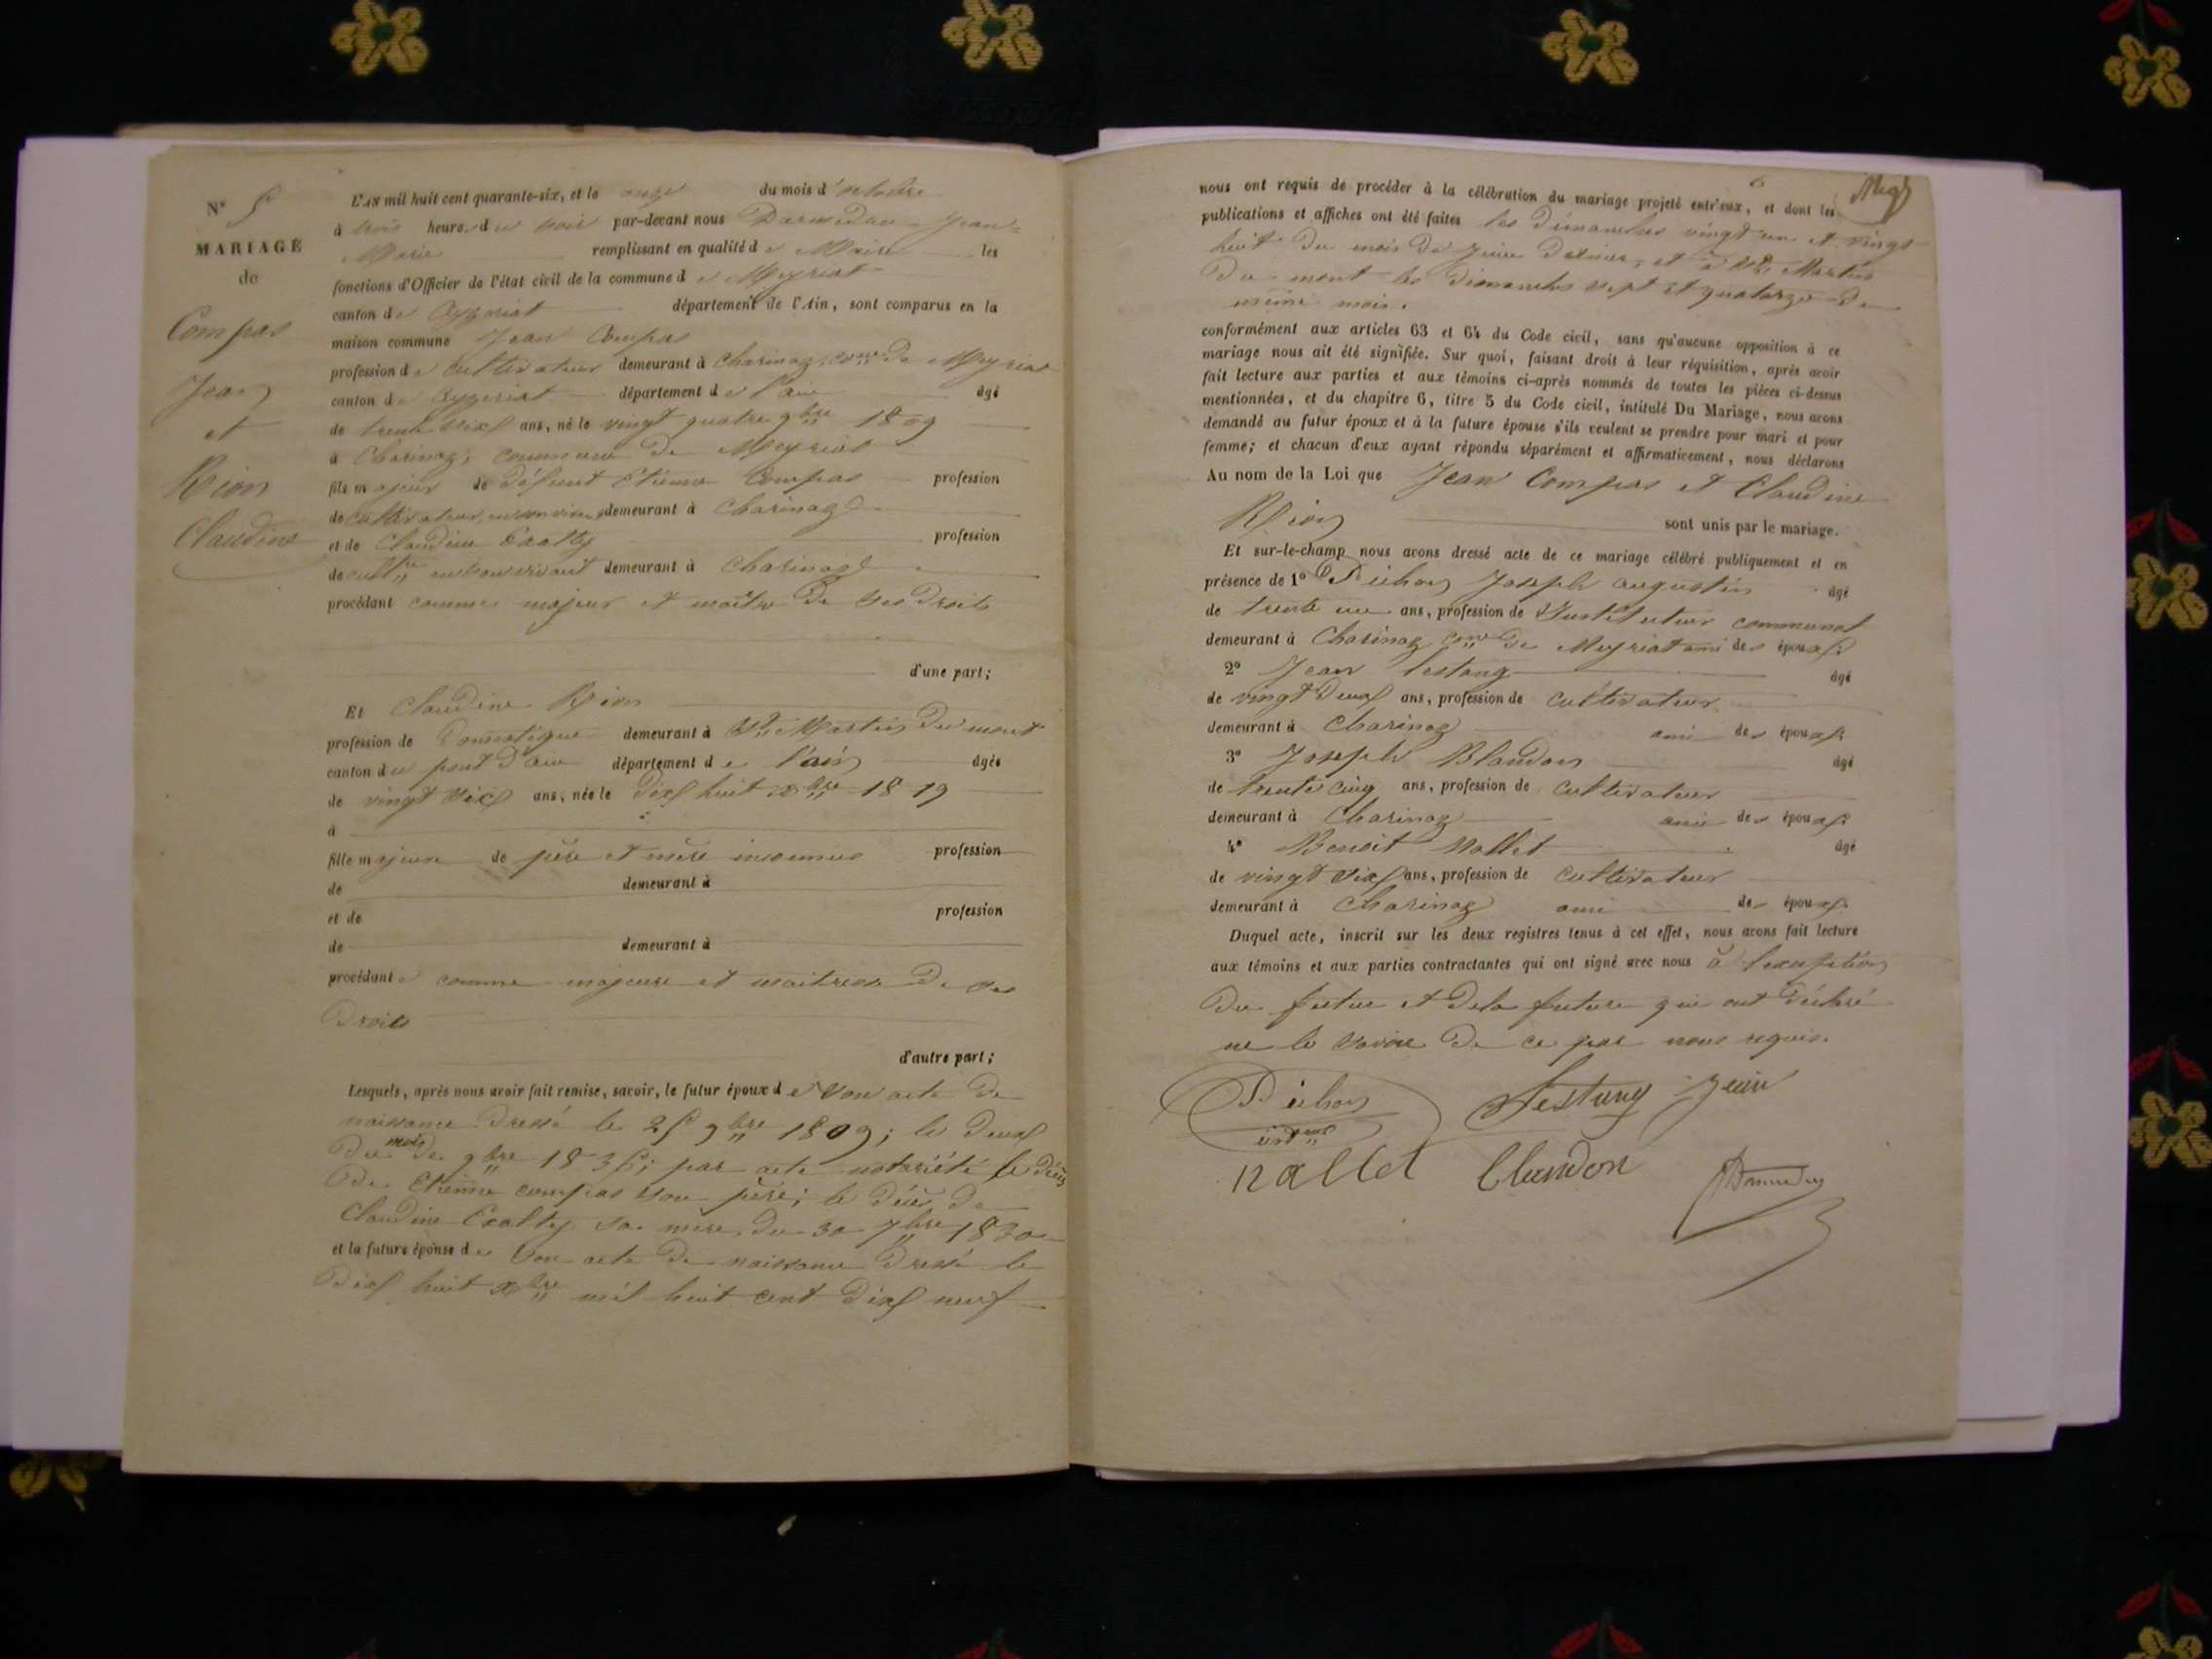 N° 5
MARIAGE
de
Compas
Jean
et
Rion
Claudine
L'AN mil huit cent quarante-six, et le onze du mois d'octobre
à trois heure du soir par-devant nous Darmedru Jean-
Marie remplissant en qualité de Maire les
fonctions d'Officier de l'état civil de la commune de Meyriat
canton de Ceyzeriat département de l'Ain, sont comparus en la
maison commune Jean Compas
profession de cultivateur demeurant à Charinaz, cne de Meyriat
canton de Ceyzeriat département de l'ain âgé
de trente six ans, né le vingt quatre 9bre 1809
à Charinaz, commune de Meyriat
fils majeur de défunt Etienne Compas profession
de cultivateur, en son vivant demeurant à Charinaz
et de Claudine profession
de cultre en son vivant demeurant à Charinaz
procédant comme majeur et maître de ses droits
d'une part;
Et Claudine Rion
profession de Domestique demeurant à St Martin du mont
canton du pont d'ain département de l'ain âgée
de vingt six ans, née le dix huit xbre 1819
à
fille majeure de père et mère inconnus profession
de demeurant à
et de profession
de demeurant à
procédante comme majeure et maitresse de ses
droits
d'autre part;
Lesquels, après nous avoir fait remise, savoir, le futur époux de son acte de
naissance dressé le 25 9bre 1809; le deux
du mois de 9bre 1835; par acte notoriété le décès
de Etienne compas son père; le décès de
Claudine sa mère, du 30 7bre 1830
et la future épouse de son acte de naissance dressé le
dix huit xbre mil huit cent dix neuf
6
nous ont requis de procéder à la célébration du mariage projeté entr'eux, et dont les
publications et affiches ont été faites les dimanches vingt un et vingt
huit du mois de Juin dernier, et à St Martin
du mont les dimanches sept et quatorze du
même mois.
conformément aux articles 63 et 64 du Code civil, sans qu'aucune opposition à ce
mariage nous ait été signifiée. Sur quoi, faisant droit à leur réquisition, après avoir
fait lecture aux parties et aux témoins ci-après nommés de toutes les pièces ci-dessus
mentionnées, et du chapitre 6, titre 5 du Code civil, intitulé Du Mariage, nous avons
demandé au futur époux et à la future épouse s'ils veulent se prendre pour mari et pour
femme; et chacun d'eux ayant répondu séparément et affirmativement, nous déclarons
Au nom de la Loi que Jean Compas et Claudine
Rion sont unis par le mariage.
Et sur-le-champ nous avons dressé acte de ce mariage célébré publiquement et en
présence de 1° Joseph augustin âgé
de trente un ans, profession de Instituteur communal
demeurant à Charinaz cne de Meyriat ami des époux
2° Jean festang âgé
de vingt deux ans, profession de cultivateur
demeurant à Charinaz ami des époux
3° Joseph Blandon âgé
de trente cinq ans, profession de cultivateur
demeurant à Charinaz ami des époux
4° Benoit Nallet âgé
de vingt six ans, profession de cultivateur
demeurant à Charinaz ami des époux
Duquel acte, inscrit sur les deux registres tenus à cet effet, nous avons fait lecture
aux témoins et aux parties contractantes qui ont signé avec nous à l'exception
du futur et de la future qui ont déclaré
ne le savoir de ce par nous requis.
Jean
nallet